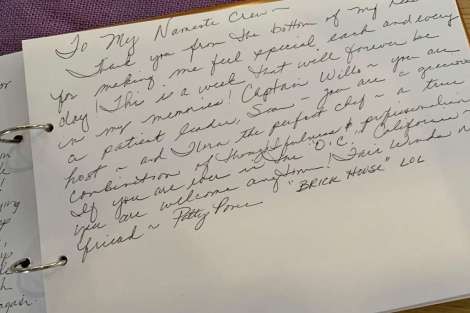 To My Namaste Crew~
Thank you from the bottom of my
for making me feel special each and every
day! This is a week that will forever be
in my memories! Captain Wills ~ you are
a patient leader, Sam ~ you are a generous
host ~ and the perfect chef ~ a true
combination of thoughtfulness & professionalism
If you are ever in the "O.C." California ~
you are welcome anytime! Fair Winds
friend ~ Patty "BRICK HOUSE" LOL
ying
up